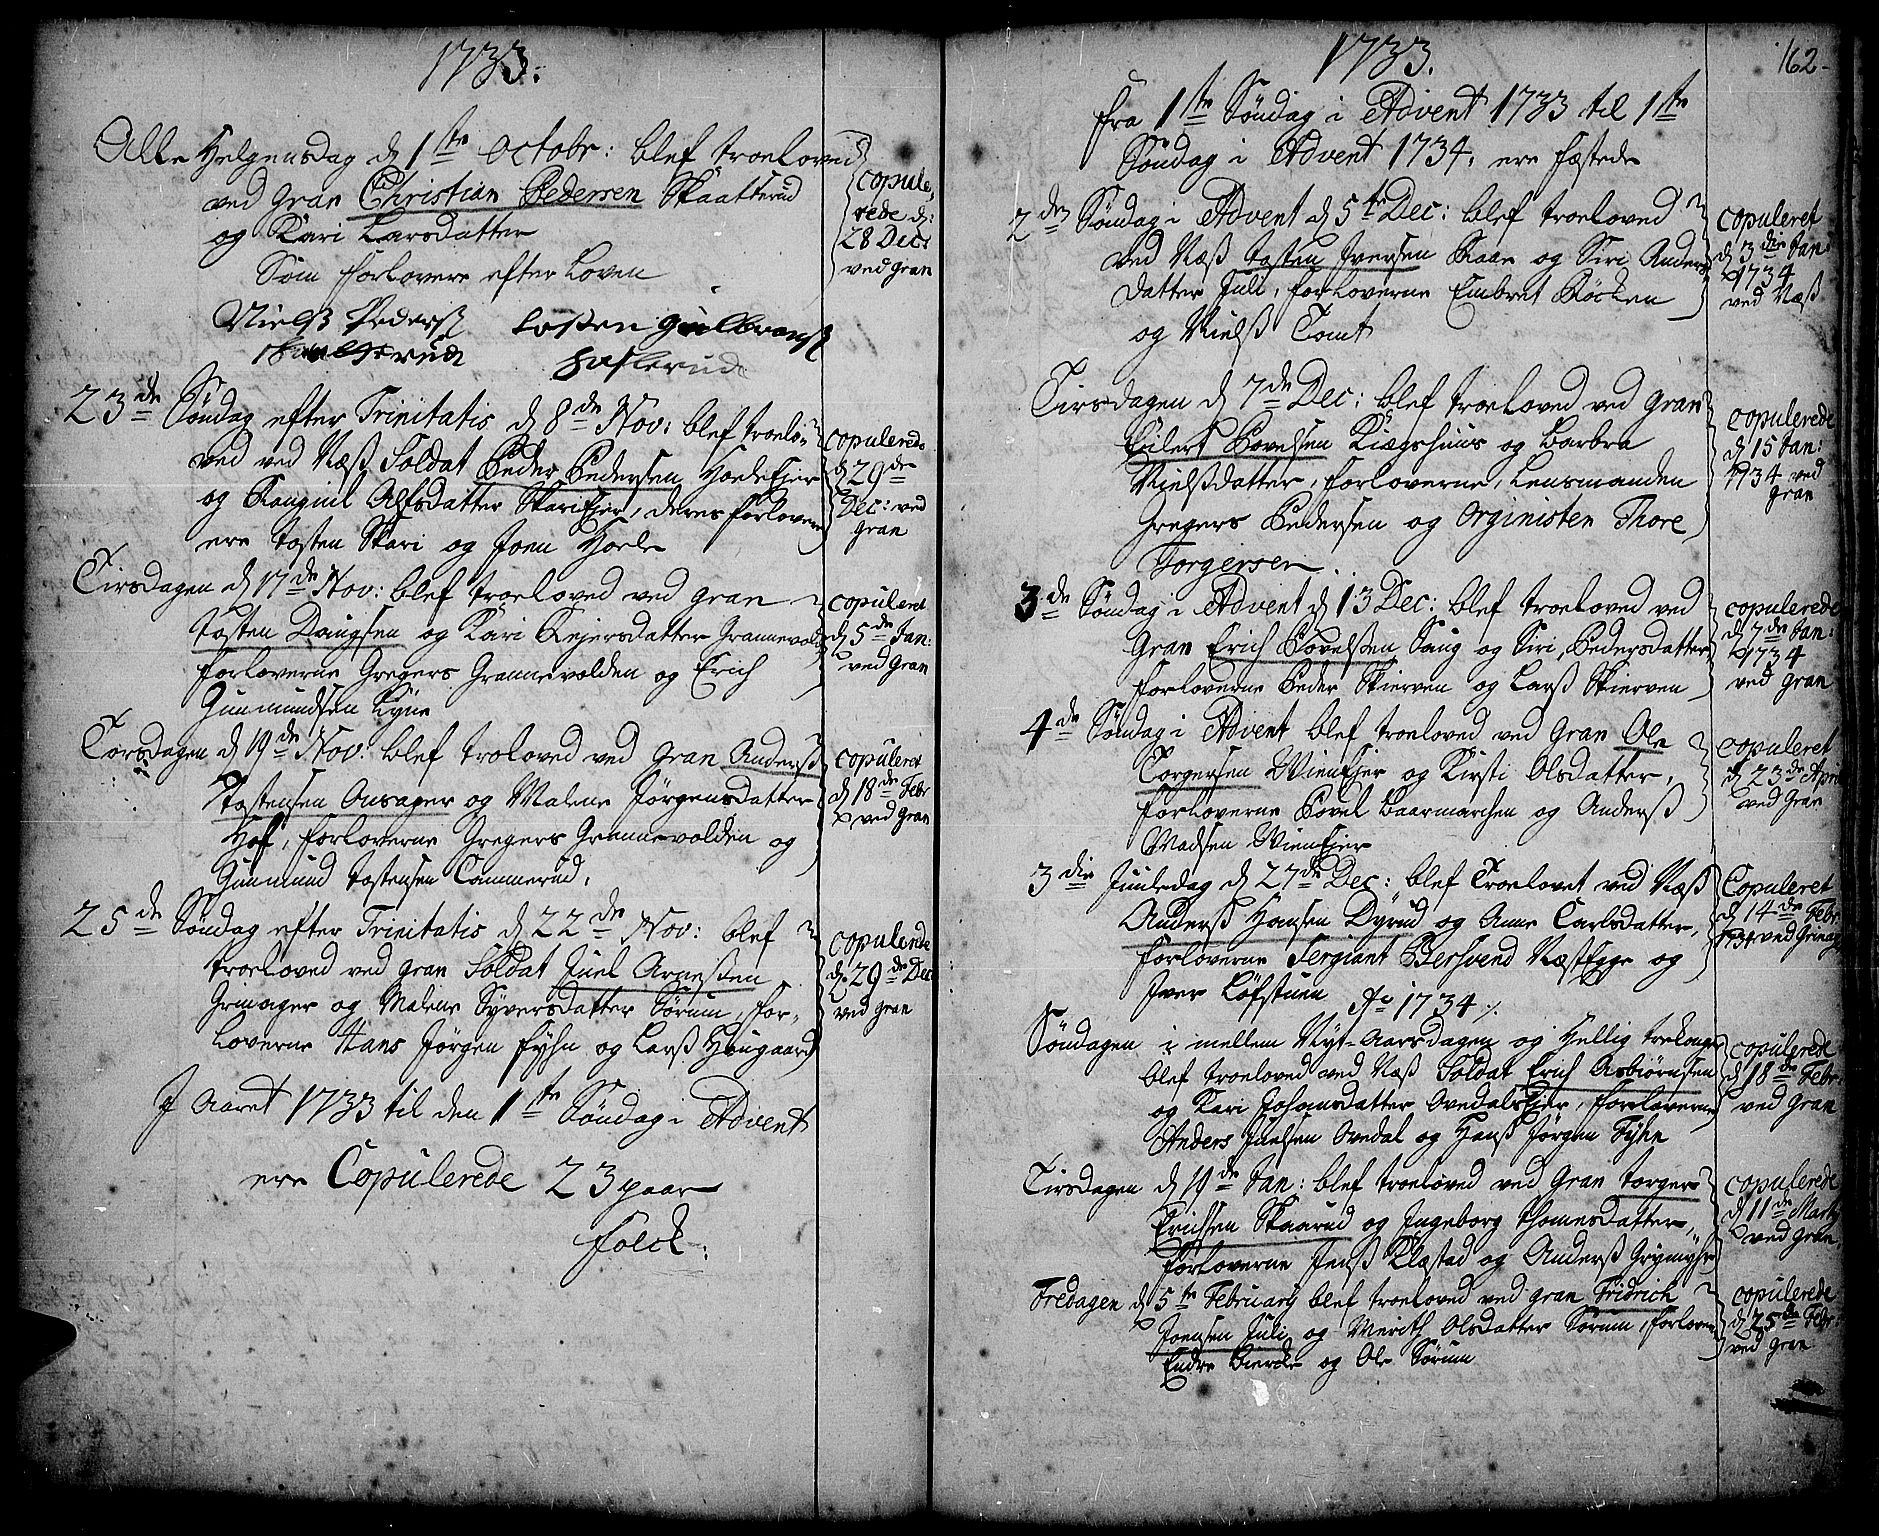 1733.
Alle Helgensdag d 1ste Octobr: blef troeloved
ved Gran Christian Pedersen Skaatterud
og Kari Larsdatter
Som forlovere efter Loven
Nielß Pederß Tosten Gulbranß
Haslerud
copule-
rede d:
28 Decr
ved gran
23de Søndag efter Trinitatis d 8de Nov: blef troelo-
ved ved Næß Soldat Peder Pedersen Hoeleejer
og Ranguil Alfsdatter Skariejer, deres forlovere
ere Tosten Skari og Joen Hoele
copulerede
d 29de
Dec: ved
gran
Tirsdagen d 17de Nov: blef troeloved ved gran
Tosten Daugsen og Kari Rejersdatter Grannevold
forloverne Gregers Grannevolden og Erich
Gunmundsen Kyne
copuleret
d 5de Jan:
ved gran
Torsdagen d 19de Nov: blef troloved ved gran Anderß
Tostensen Onsager og Malene Jørgensdatter
Hof, forloverne Gregers Grannevolden og
Gunmund Tostensen Cammerud.
copuleret
d 18de Febr
ved gran
25de Søndag efter Trinitatis d 22de Nov: blef
troeloved ved gran Soldat Juel Arneßen
Grinager og Malene Syversdatter Sørum, for-
loverne Hans Jørgen Fyhn og Larß Hougaard
copulerede
d. 29de Dec
ved gran
I Aaret 1733 til den 1ste Søndag i Advent
ere Copulerede 23 paar
folck.
1733.
162
fra 1ste Søndag i Advent 1733 til 1ste
Søndag i Advent 1734, ere fæstede
2den Søndag i Advent d 5te Dec: blef troeloved
ved Næß Tosten Iversen Raae og Siri Anders
datter Juli, forloverne Embret Røcken
og Nielß Tomt
copuleret
d 3die Jan:
1734
ved Næß
Tirsdagen d 7de Dec: blef troeloved ved gran
Eilert Povelsen Klægshuus og Barbra
Nielßdatter, forloverne, Lensmanden
Gregers Pedersen og Orginisten Thore
Torgersen.
copulerede
d 15 Jan:
1734 ved
gran
3de Søndag i Advent d 13 Dec: blef troeloved ved
Gran Erich Povelßen Saug og Siri Pedersdatter
forloverne Peder Skierven og Larß Skierven
copulerede
d 7de Jan:
1734
ved gran
4de Søndag i Advent blef troeloved ved gran Ole
Torgersen Wienejer og Kirsti Olsdatter,
forloverne Povel Baarmarchen og Anderß
Madsen Wienejer
copuleret
d 23de April
ved Gran
3die Juuledag d 27de Dec: blef Troelovet ved Næß
Anderß Hansen Dyrud og Anne Carlsdatter,
forloverne Sergiant Bersvend Næstegge og
Iver Løfstuen Ao 1734 ./.
Copuleret
d 14de Febr
1734 ved Grinag
Søndagen i mellem Nyt-Aarsdagen og Hellig trekonger
blef troeloved ved Næß Soldat Erich Asbiørnsen
og Kari Johansdatter Ovedalsejer, forloverne
Anders Juelsen Ovedal og Hanß Jørgen Fyhn
copulerede
d 18de Febr:
ved gran
Tirsdagen d 19de Jan: blef troeloved ved gran Torger
Erichsen Skaarud og Ingeborg Thomesdatter,
forloverne Jenß Klæstad og Anderß Grymyhr
copulerede
d 11de Marty
ved gran
Fredagen d 5te February blef troeloved ved gran Fridrich
Joensen Juli og Merith Olsdatter Sørum, forlovere
Endre Biercke og Ole Sørum
copulerede
d 25de Febr:
ved gran